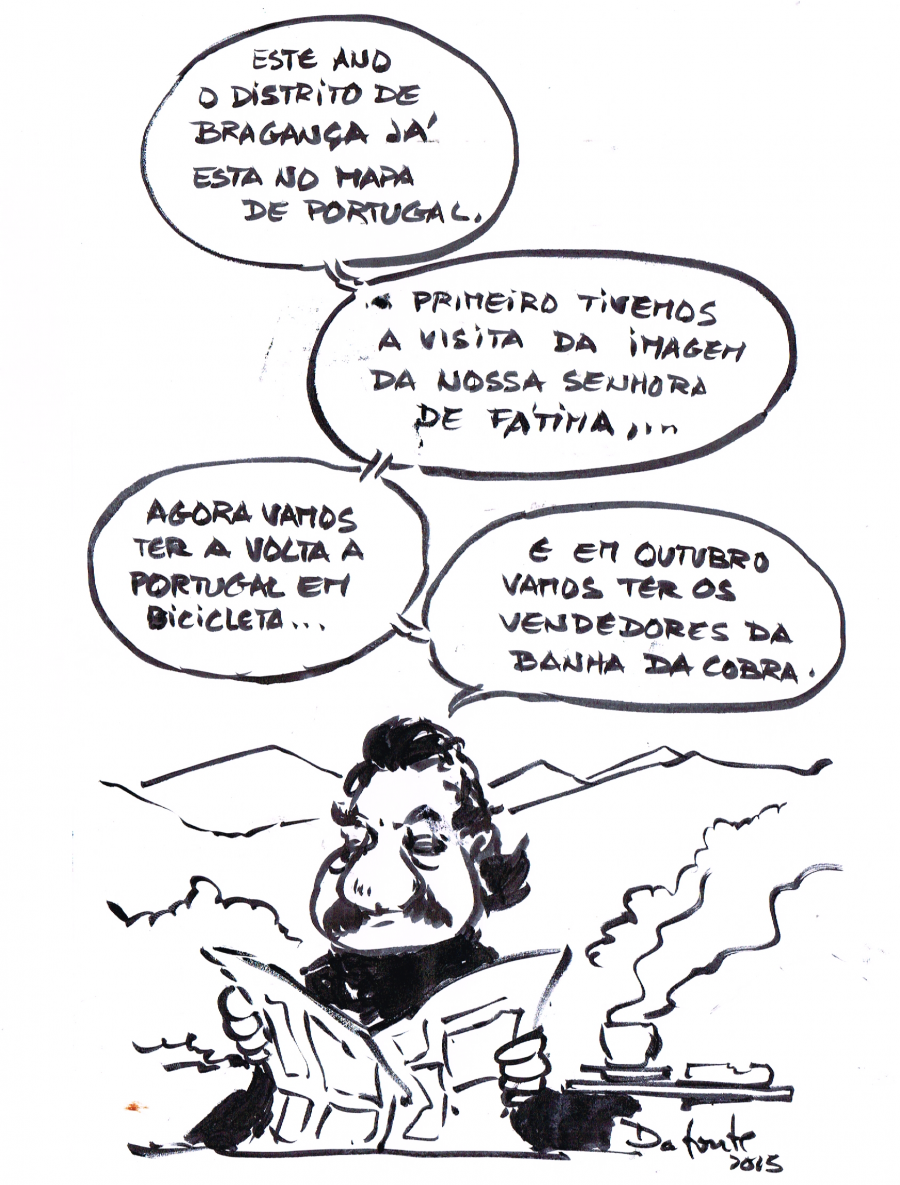 ESTE ANO
O DISTRITO DE
BRAGANÇA JÁ
ESTA NO MAPA
DE PORTUGAL.
PRIMEIRO TIVEMOS
A VISITA DA IMAGEM
DA NOSSA SENHORA
DE FÁTIMA,...
AGORA VAMOS
TER A VOLTA A
PORTUGAL EM
BICICLETA...
E EM OUTUBRO
VAMOS TER OS
VENDEDORES DA
BANHA DA COBRA.
Dafonte
2015